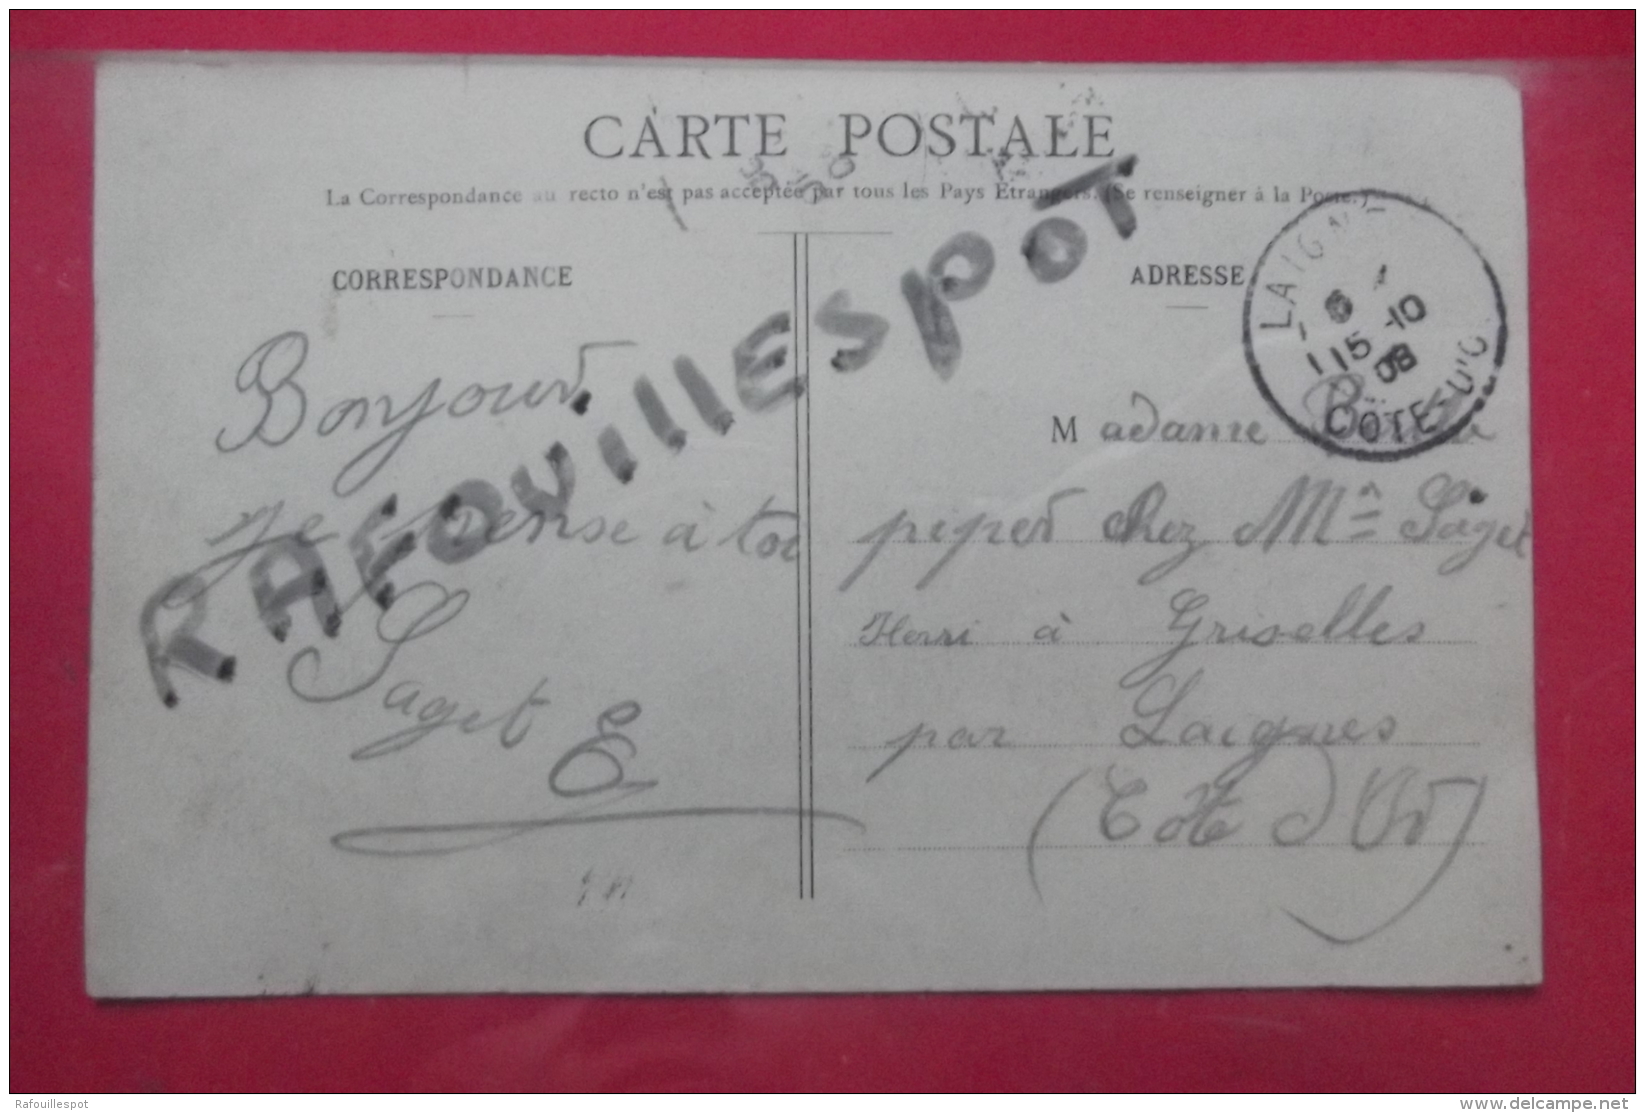 CARTE POSTALE
La Correspondance au recto n'est pas acceptée par tous les Pays Etrangers. (Se renseigner à la Poste.)
CORRESPONDANCE
Bonjour
je pense à toi
Saget
E
ADRESSE
Madame
peper chez Mme Saget
Henri à Griselles
par Laignes
(Cote d'Or)
LAIGNES
6
15 -10
08
COTE-D'O
RAFOUILLESPOT
Rafouillespot
delcampe.net